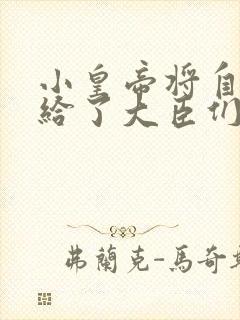 小皇帝将自
给了大臣们
弗蘭克-馬奇